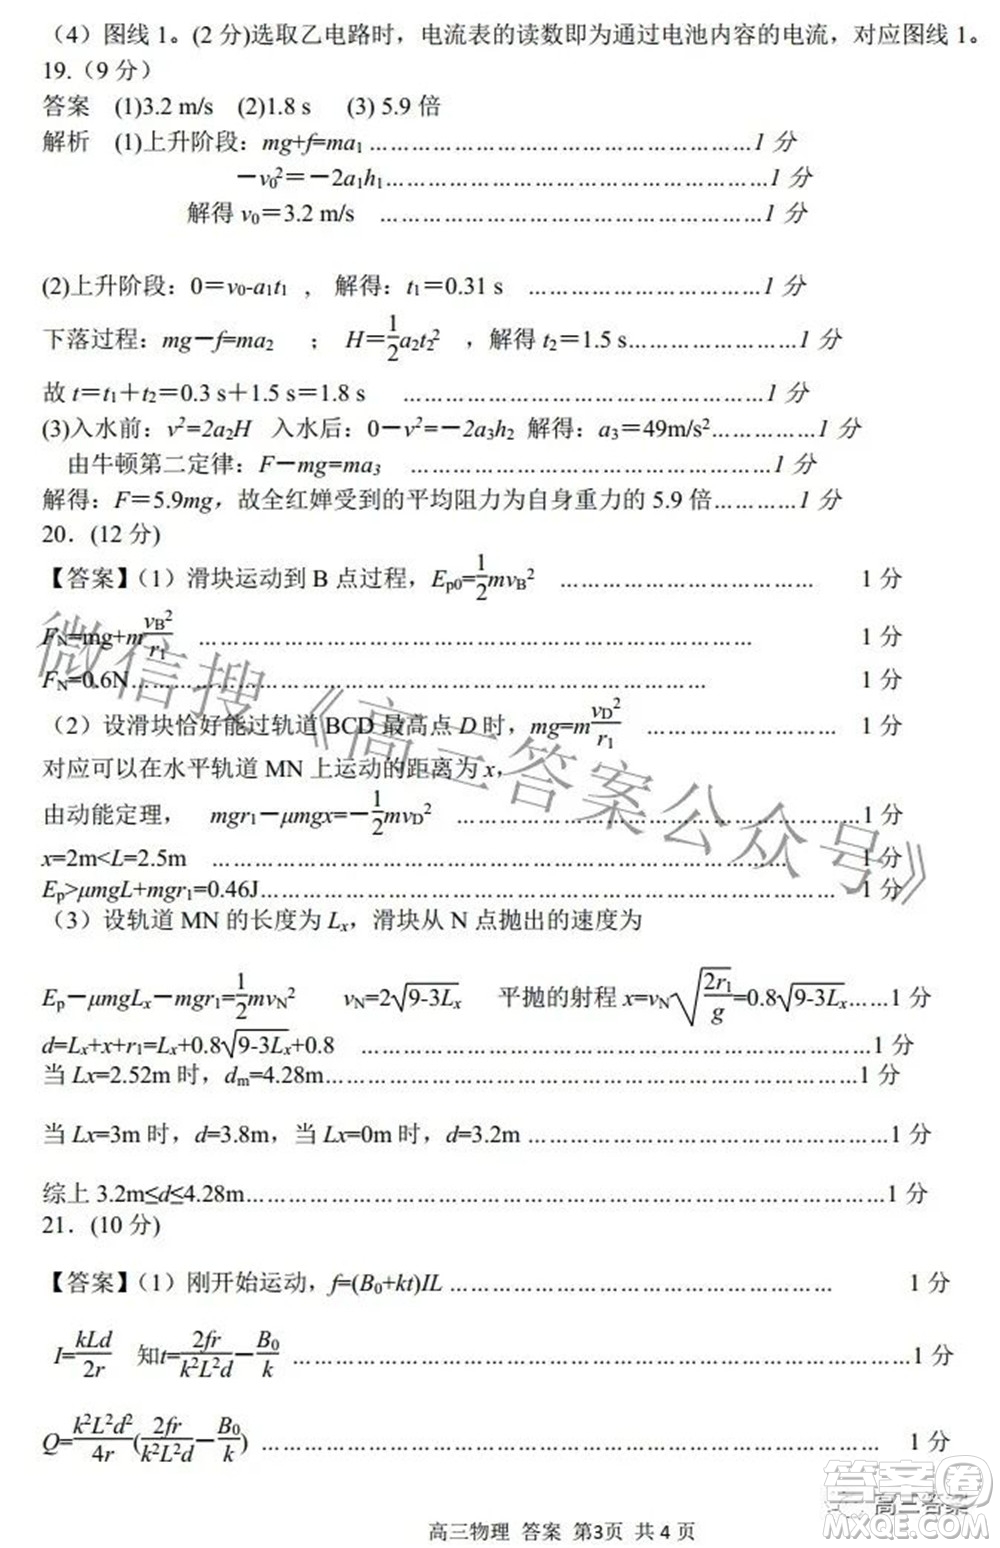 （4）图线 1。(2 分)选取乙电路时，电流表的读数即为通过电池内容的电流，对应图线 1。
19.（9 分）
答案 (1)3.2 m/s (2)1.8 s (3) 5.9 倍
解析 (1)上升阶段：mg+f=ma₁ ………………………………………………1 分
－v₀²＝－2a₁h₁………………………………………………1 分
解得 v₀＝3.2 m/s ………………………………………………1 分
(2)上升阶段：0＝v₀-a₁t₁ ， 解得：t₁＝0.31 s ………………………………1 分
下落过程：mg－f=ma₂ ； H＝1/2a₂t₂² ，解得 t₂＝1.5 s……………………1 分
故 t＝t₁＋t₂＝0.3 s＋1.5 s＝1.8 s ………………………………………………1 分
(3)入水前：v²=2a₂H 入水后：0－v²=－2a₃h₂ 解得：a₃＝49m/s²……………1 分
由牛顿第二定律：F－mg=ma₃ ………………………………………………1 分
解得：F＝5.9mg，故全红婵受到的平均阻力为自身重力的 5.9 倍…………1 分
20．(12 分)
【答案】（1）滑块运动到 B 点过程，Eₚ₀=1/2mv_B² ……………………………… 1 分
F_N=mg+mv_B²/r₁ ………………………………………………………………… 1 分
F_N=0.6N………………………………………………………………………… 1 分
（2）设滑块恰好能过轨道 BCD 最高点 D 时，mg=mv_D²/r₁ …………………… 1 分
对应可以在水平轨道 MN 上运动的距离为 x，
由动能定理， mgr₁－μmgx=－1/2mv_D² ………………………………………………1 分
x=2m<L=2.5m ……………………………………………………………… 1 分
Eₚ>μmgL+mgr₁=0.46J……………………………………………………………… 1 分
（3）设轨道 MN 的长度为 Lₓ，滑块从 N 点抛出的速度为
Eₚ－μmgLₓ－mgr₁=1/2mv_N² v_N=2√(9-3Lₓ) 平抛的射程 x=v_N√(2r₁/g)=0.8√(9-3Lₓ)……1 分
d=Lₓ+x+r₁=Lₓ+0.8√(9-3Lₓ)+0.8 ………………………………………………………1 分
当 Lx=2.52m 时，dₘ=4.28m………………………………………………………………1 分
当 Lx=3m 时，d=3.8m，当 Lx=0m 时，d=3.2m ………………………………………1 分
综上 3.2m≤d≤4.28m………………………………………………………………………1 分
21．(10 分)
【答案】（1）刚开始运动，f=(B₀+kt)IL ……………………………………………… 1 分
I=kLd/2r 知t=2fr/k²L²d－B₀/k ………………………………………………………………1 分
Q=k²L²d²/4r(2fr/k²L²d－B₀/k) ……………………………………………………………… 1 分
高三物理 答案 第3页 共 4 页
微信搜《高三答案公众号》
答案卷
高三答案